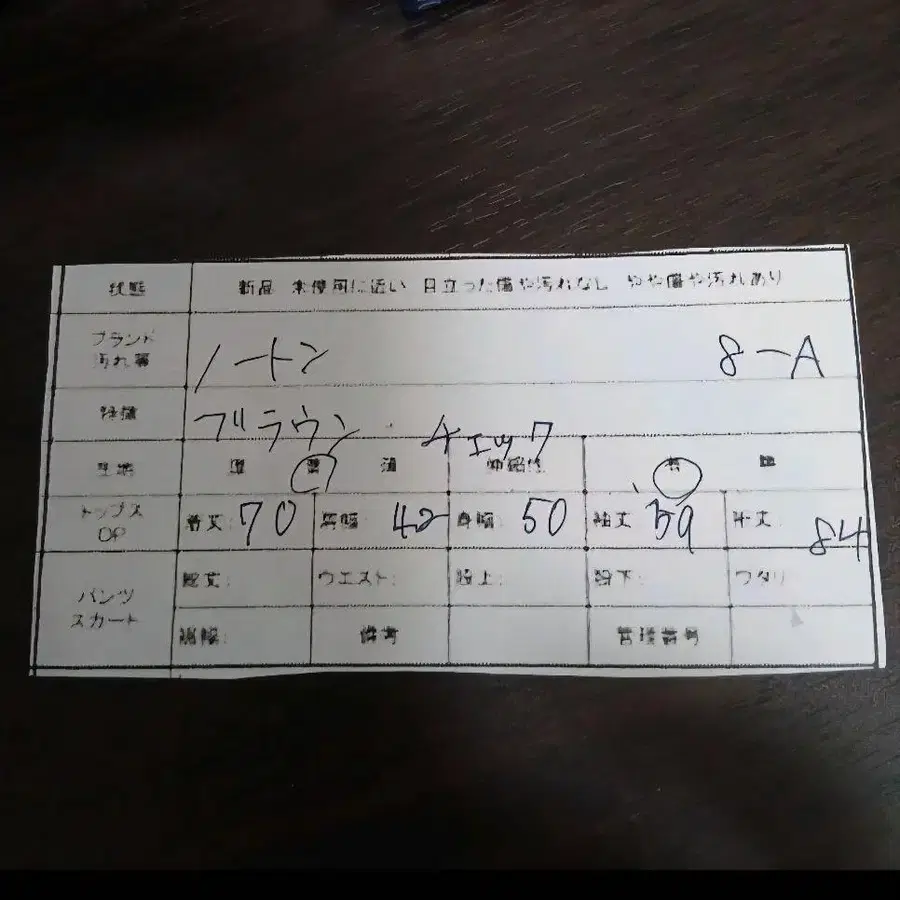 状態 新品 未使用に近い 目立った傷や汚れなし やや傷や汚れあり
ブランド
汚れ等
ノートン 8-A
ブラウン チェック
生地 薄 普 濃 伸縮性 有 無
トップス
OP
着丈: 70 肩幅: 42 身幅: 50 袖丈 59 裄丈: 84
パンツ
スカート
総丈: ウエスト: 股上: 股下: ワタリ
裾幅: 備考 管理番号